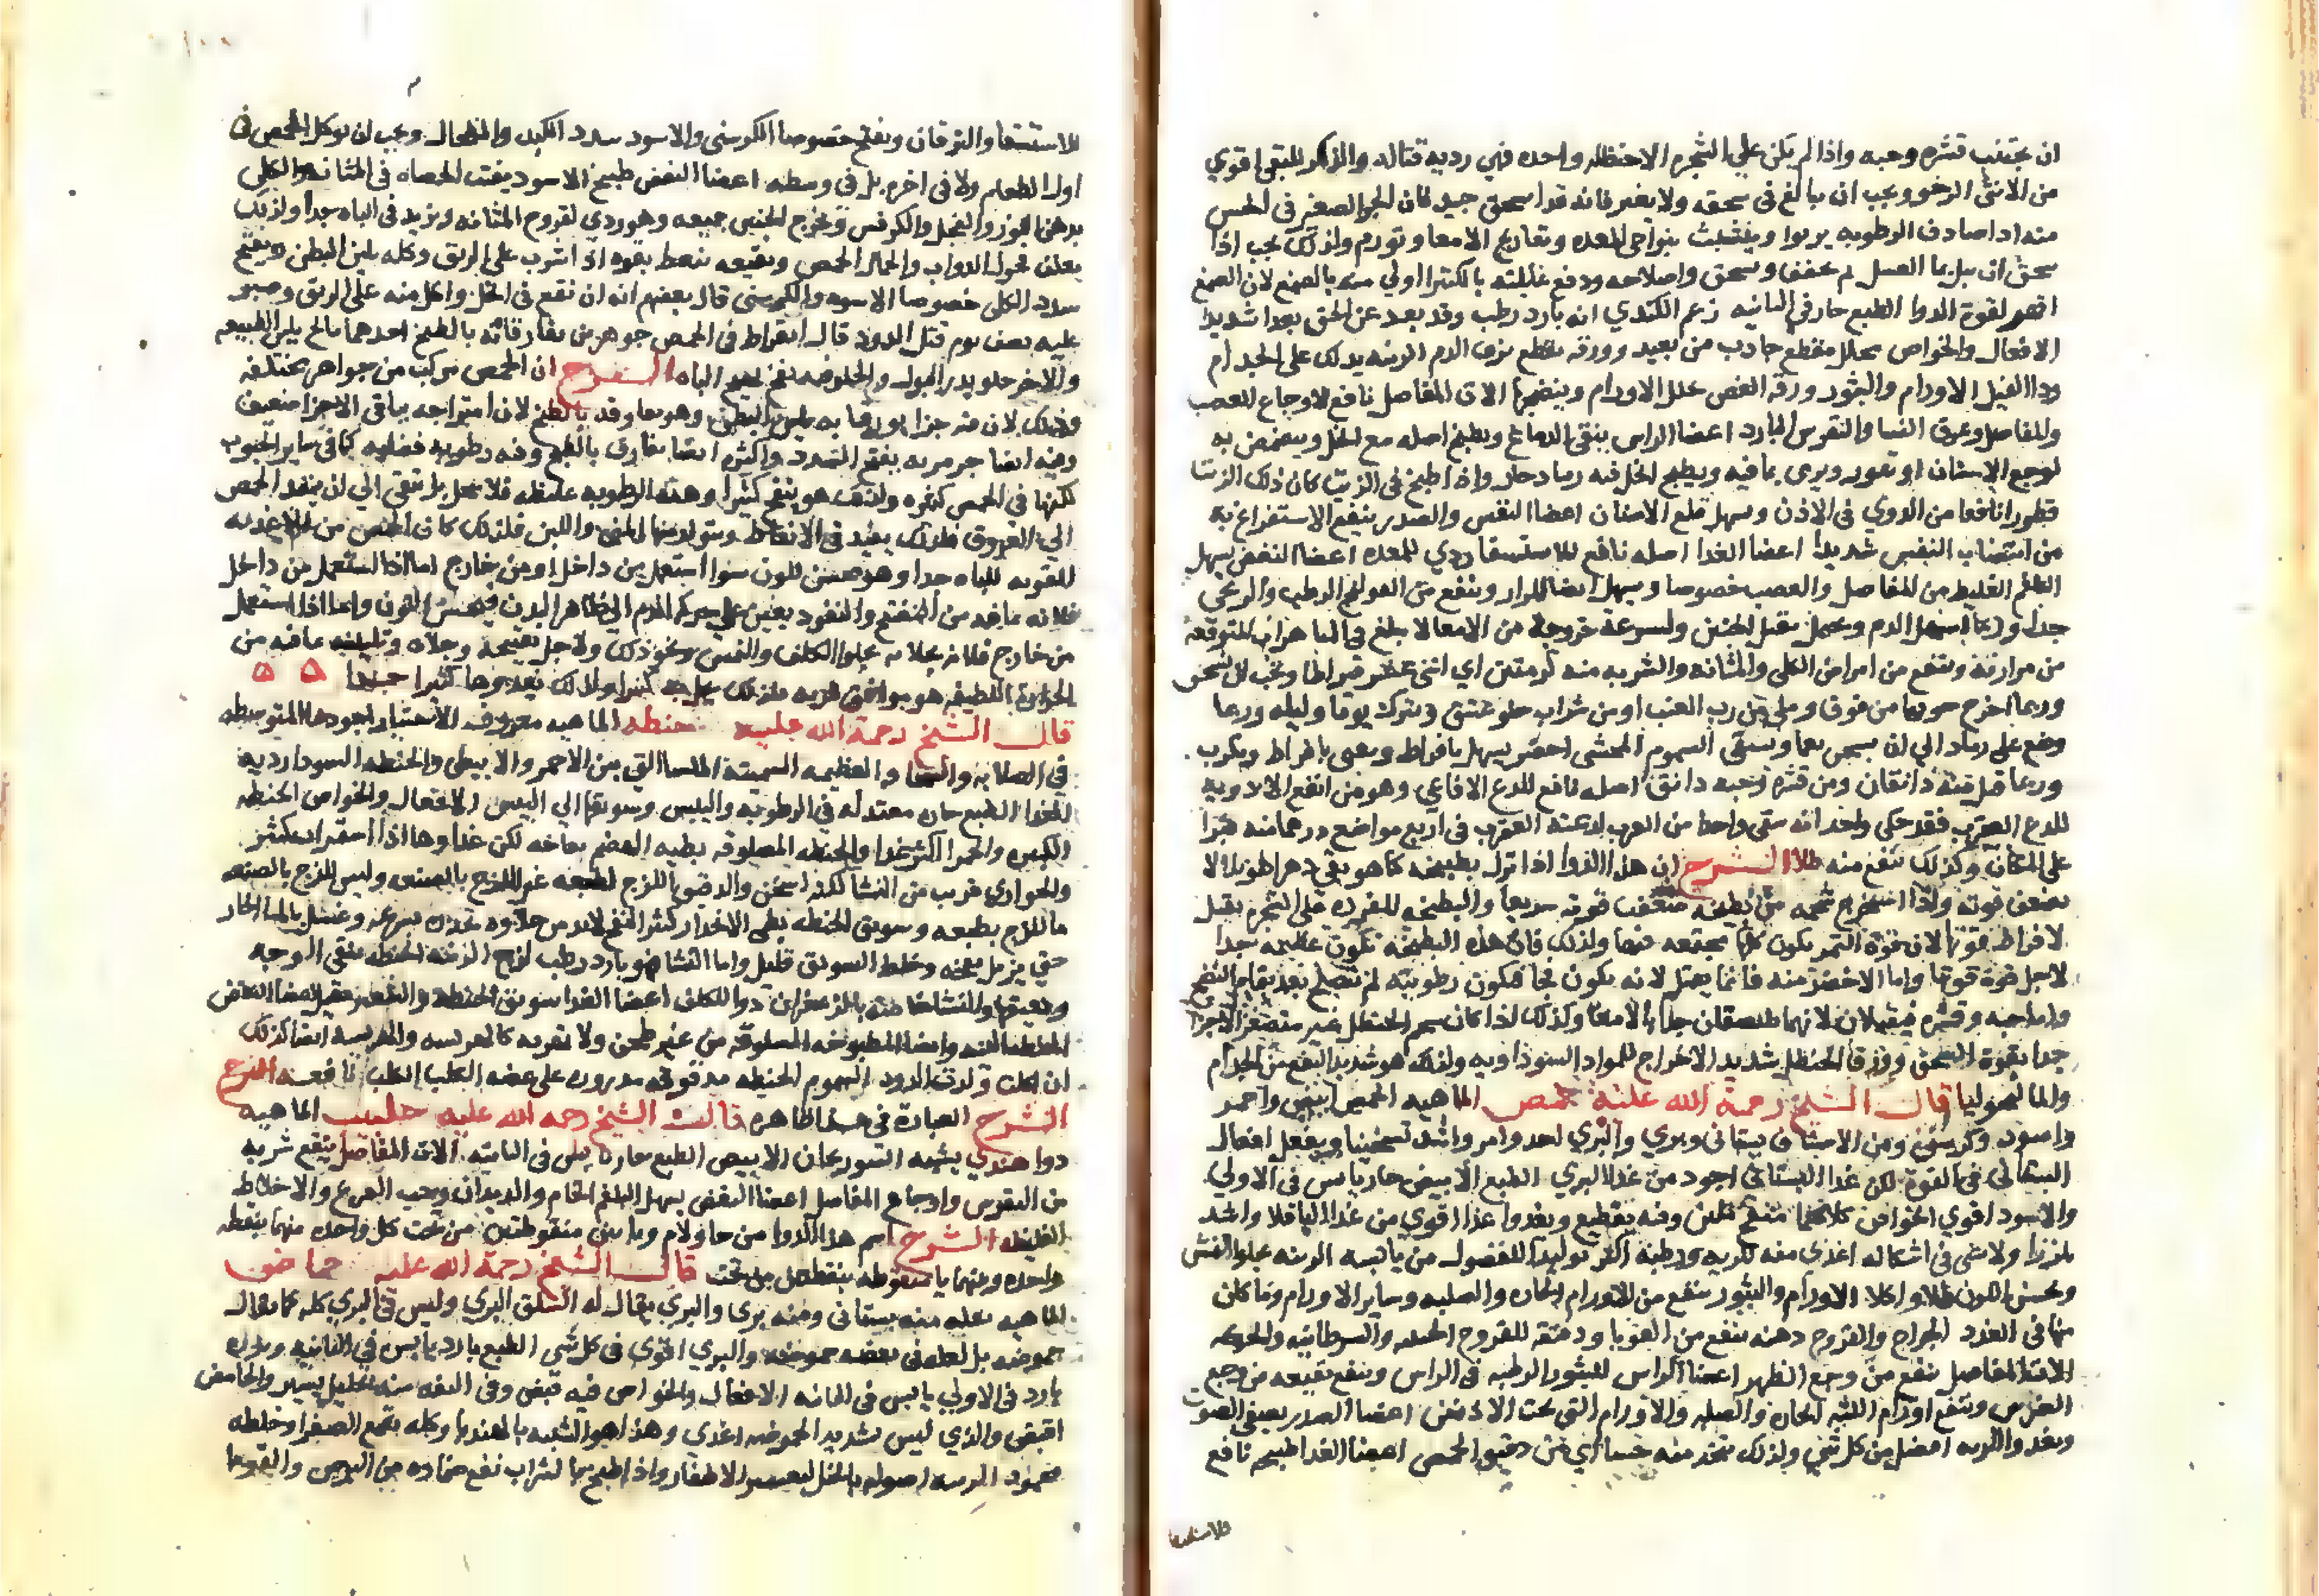 ان يجتنب قشره وحبه واذا لم يكن علي الشجره الا حنظله واحده فهي رديه قتاله والذكر الليفي اقوي
من الانثى الرخو ويجب ان يبالغ في سحقه ولا يغتر فانه قد اسحق جيد فان الجزء الصغير في الحس
منه اذا صادف الرطوبه يربوا ويتشبث بنواحي المعده وتعاريج الامعا وتورم ولذلك يجب اذا
سحق ان يبل بما العسل ثم يجفف ويسحق واصلاحه ودفع غائلته بالكثيرا اولي منه بالصمغ لان الصمغ
اقهر لقوة الدوا الطبع حار في الثانيه زعم الكندي انه بارد رطب وقد بعد عن الحق بعدا شديدا
الافعال والخواص محلل مقطع جاذب من بعيد وورقه يقطع نزف الدم الزينه يدلك على الجذام
وداالفيل الاورام والبثور ورقه الغض يحلل الاورام وينضجها الات المفاصل نافع لاوجاع العصب
والمفاصل وعرق النسا والنقرس البارد اعضا الراس ينقي الدماغ ويطبخ اصله مع الخل ويتمضمض به
لوجع الاسنان او يقور ويرمى بما فيه ويطبخ الخل فيه في رماد حار واذا طبخ في الزيت كان ذلك الزيت
قطورا نافعا من الدوي في الاذن ويسهل قلع الاسنان اعضا النفس والصدر ينفع الاستفراغ به
من انتصاب النفس شديدا اعضا الغذا اصله نافع للاستسقا ردي للمعده اعضا النفض يسهل
البلغم الغليظ من المفاصل والعصب خصوصا ويسهل ايضا المرار وينفع من القولنج الرطب والريحي
جدا وربما اسهل الدم ويحمل فيقتل الجنين ولسرعة خروجه من الامعا لا يبلغ في التاثير المتوقع
من مرارته وينفع من امراض الكلى والمثانه والشربه منه كرمتين اي اثنى عشر قيراطا ويجب ان يسحق
وربما اخرج جوفها من فوق وملي من رب العنب او من شراب حلو عتيق ويترك يوما وليله وربما
وضع على رماد الى ان يسخن نعما ويسقى السموم المجتنى اخضر يسهل بافراط ويقيى بافراط ويكرب
وربما قتل منه دانقان ومن قشره وحبه دانق اصله نافع للدغ الافاعي وهو من انفع الادويه
للدغ العقرب فقد حكى واحد انه سقى واحدا من العرب لدغته العقرب في اربع مواضع درهما منه فبرا
على المكان وكذلك ينفع منه طلاا الشرح ان هذا الدوا اذا ترك بطبيخه كما هو بقي دهرا طويلا لا
تضعف قوته واذا استخرج شحمه من بطيخه ضعفت قوته سريعا والبطيخه المفرده على الشجره يقتل
لافراط قوتها لان قوة الثمر يكون كلها مجتمعه فيها ولذلك فان هذه البطيخه تكون عظيمه جدا
لاجل قوة قوتها واما الاخضر منه فانما يقتل لانه يكون فجا فتكون رطوبته لم تصلح بعد بتمام النضج
واما حبه وقشره فيقتلان لانهما يلتصقان جدا بالامعا وكذلك اذا كان شحم الحنظل غير متصغر الاجزا
جدا بقوة السحق وورق الحنظل شديد الاخراج للمواد السوداويه ولذلك هو شديد النفع من الجذام
والمالنخوليا قال الشيخ رحمة الله عليه حمص الماهيه الحمص ابيض واحمر
واسود وكرسني ومن الاصناف بستاني وبري والبري احد وامر واشد تسخينا ويفعل افعال
البستاني في القوة لكن غذا البستاني اجود من غذا البري الطبع الابيض حار يابس في الاولي
والاسود اقوي الخواص كلاهما منفخ ملين وفيه تقطيع ويغذوا غذا اقوي من غذا الباقلا واشد
تلززا ولا شى في اشكاله اغذى منه للريه ورطبه اكثر توليدا للفضول من يابسه الزينه يجلوا النمش
ويحسن اللون طلاا واكلا الاورام والبثور ينفع من الاورام الحاره والصلبه وساير الاورام وما كان
منها في الغدد الجراح والقروح دهنه ينفع من القوبا ودقيقه للقروح الخبيثه والسرطانيه والحكه
الات المفاصل ينفع من وجع الظهر اعضا الراس للبثور الرطبه في الراس وينفع نقيعه من وجع
الضرس وينفع اورام اللثه الحاره والصلبه والاورام التي تحت الاذنين اعضا الصدر يصفي الصوت
ويغذوا الريه افضل من كل شي ولذلك يتخذ منه حسا اي من دقيق الحمص اعضا الغذا طبيخه نافع
للاستسقا
١٠٠
للاستسقا واليرقان ويفتح خصوصا الكرسني والاسود سدد الكبد والطحال ويجب ان لا يوكل الحمص في
اول الطعام ولا في اخره بل في وسطه اعضا النفض طبيخ الاسود يفتت الحصاه في المثانه والكلى
بدهن اللوز والفجل والكرفس ويخرج الجنين جميعه وهو ردي لقروح المثانه ويزيد في الباه جدا ولذلك
يعلف فحول الدواب والجمال الحمص ونقيعه ينعظ بقوه اذا شرب على الريق وكله يلين البطن ويفتح
سدد الكلى خصوصا الاسود والكرسني قال بعضهم انه ان نقع في الخل واكل منه على الريق وصبر
عليه نصف يوم قتل الدود قال ابقراط في الحمص جوهرين يفارقانه بالطبخ احدهما مالح يلين الطبيعه
والاخر حلو يدر البول والحلو فيه نفخ يهيج الباه الشرح ان الحمص مركب من جواهر مختلفه
وذلك لان فيه جزا بورقيا به يلين البطن وهو مما يفارقه بالطبخ لان امتزاجه بباقي الاجزا ضعيف
وفيه ايضا جرم مر به يفتح السدد واكثره ايضا يفارق بالطبخ وفيه رطوبه فضليه كما في ساير الحبوب
لكنها في الحمص كثيره ولذلك هو ينفخ كثيرا وهذه الرطوبه غليظه فلا تتحلل بل تبقى الى ان ينفذ الحمص
الى العروق فلذلك يعين في الانعاظ ويتولد منها المني واللبن فلذلك كان الحمص من الاغذيه
المقويه للباه جدا وهو محسن للون سوا استعمل من داخل او من خارج اما اذا استعمل من داخل
فلانه بما فيه من التفتيح والنفوذ يعين على حركة الدم الى ظاهر البدن فيحسن اللون واما اذا استعمل
من خارج فلانه بجلائه يجلوا الكلف والنمش ونحو ذلك ولاجل تفتيحه وجلائه وتليينه بما فيه من
الحراره اللطيفه هو موافق للريه
قال الشيخ رحمة الله عليه حنطه الماهيه معروفه الاختيار اجودها المتوسطه
في الصلابه والسخافه العظيمه السمينه الملسا التي بين الاحمر والابيض والحنطه السودا رديه
الغذا الطبع حاره معتدله في الرطوبه واليبس وسويقها الى اليبس الافعال والخواص الحنطه
الكبيره والحمرا اكثر غذا والحنطه المسلوقه بطيه الهضم نفاخه لكن غذاوها اذا استمرات كثير
والحواري قريب من النشا لكنه اسخن والدقيق اللزج بطبعه غير اللزج بالصنعه وليس للزج بالصنعه
ما للزج بطبعه وسويق الحنطه بطي الانحدار كثير النفخ لابد من حلاوه تحدره بسرعه وغسل بالما الحار
حتى يزيل نفخه وخلط السويق قليل واما النشا فهو بارد رطب لزج الزينه الحنطه تنقي الوجه
ودقيقها والنشا خاصه بالزعفران دوا للكلف اعضا الغذا سويق الحنطه
الحنطه النيه وايضا المطبوخه المسلوقه من غير طحن ولا تهريه كالهريسه والهريسه ايضا كذلك
ان اكلت ولدت الدود السموم الحنطه مدقوقه مذروره على عضه الكلب الكلب نافعه
الشرح العبارة في هذا ظاهره قال الشيخ رحمه الله عليه حلبيب الماهيه
دوا هندي يشبه السورنجان الابيض الطبع حار يابس في الثانيه الات المفاصل ينفع شربه
من النقرس واوجاع المفاصل اعضا النفض يسهل البلغم الخام والديدان وحب القرع والاخلاط
الغليظه الشرح اسم هذا الدوا من حا ولام وبائين منقوطتين من تحت كل واحده منهما بنقطه
واحده وبينهما يا منقوطه بنقطتين من تحت قال الشيخ رحمة الله عليه حماض
الماهيه بقله منه بستاني ومنه بري والبري يقال له السلق البري وليس في البري كله كما يقال
حموضه بل لعله في بعضه حموضه والبري اقوى في كل شي الطبع بارد يابس في الثانيه وبزره
بارد في الاولي يابس في الثانيه الافعال والخواص فيه قبض وفي التفه منه تحليل يسير والحامض
اقبض والذي ليس شديد الحموضه اغذي وهذا هو الشبيه بالهندبا وكله يقمع الصفرا وخلطه
محمود الزينه اصوله بالخل لتقشير الاظفار واذا طبخ بالشراب نفع ضماده من البرص والقوبا